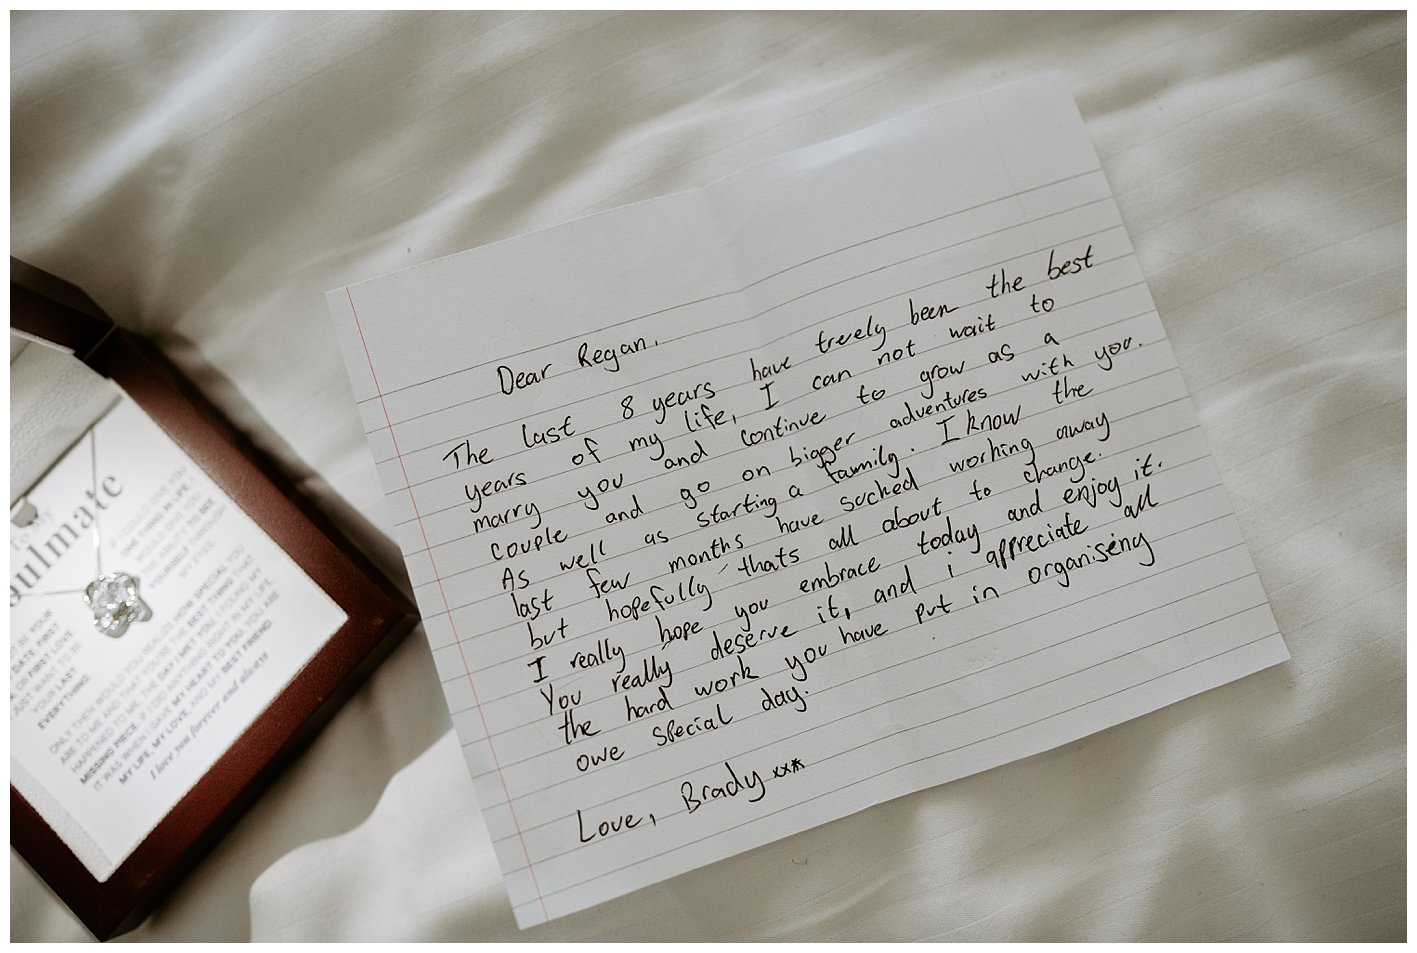 Dear Regan,
The last 8 years have treuely been the best
years of my life, I can not wait to
marry you and continue to grow as a
couple and go on bigger adventures with you.
As well as starting a family. I know the
last few months have sucked working away
but hopefully thats all about to change.
I really hope you embrace today and enjoy it.
You really deserve it, and i appreciate all
the hard work you have put in organiseing
owe special day.
Love, Brady xxx
To My
oulmate
ONE THING IN LIFE,
THE ABILITY TO SEE
MY EYES.
HOW SPECIAL YOU
ONLY THEN WOULD YOU REALIZE HOW SPECIAL YOU
ARE TO ME AND THAT YOU'RE THE BEST THING THAT
HAPPENED TO ME. THE DAY I MET YOU, I FOUND MY
MISSING PIECE. IF I DID ANYTHING RIGHT IN MY LIFE,
IT WAS WHEN I GAVE MY HEART TO YOU. YOU ARE
MY LIFE, MY LOVE, AND MY BEST FRIEND
I love you forever and always